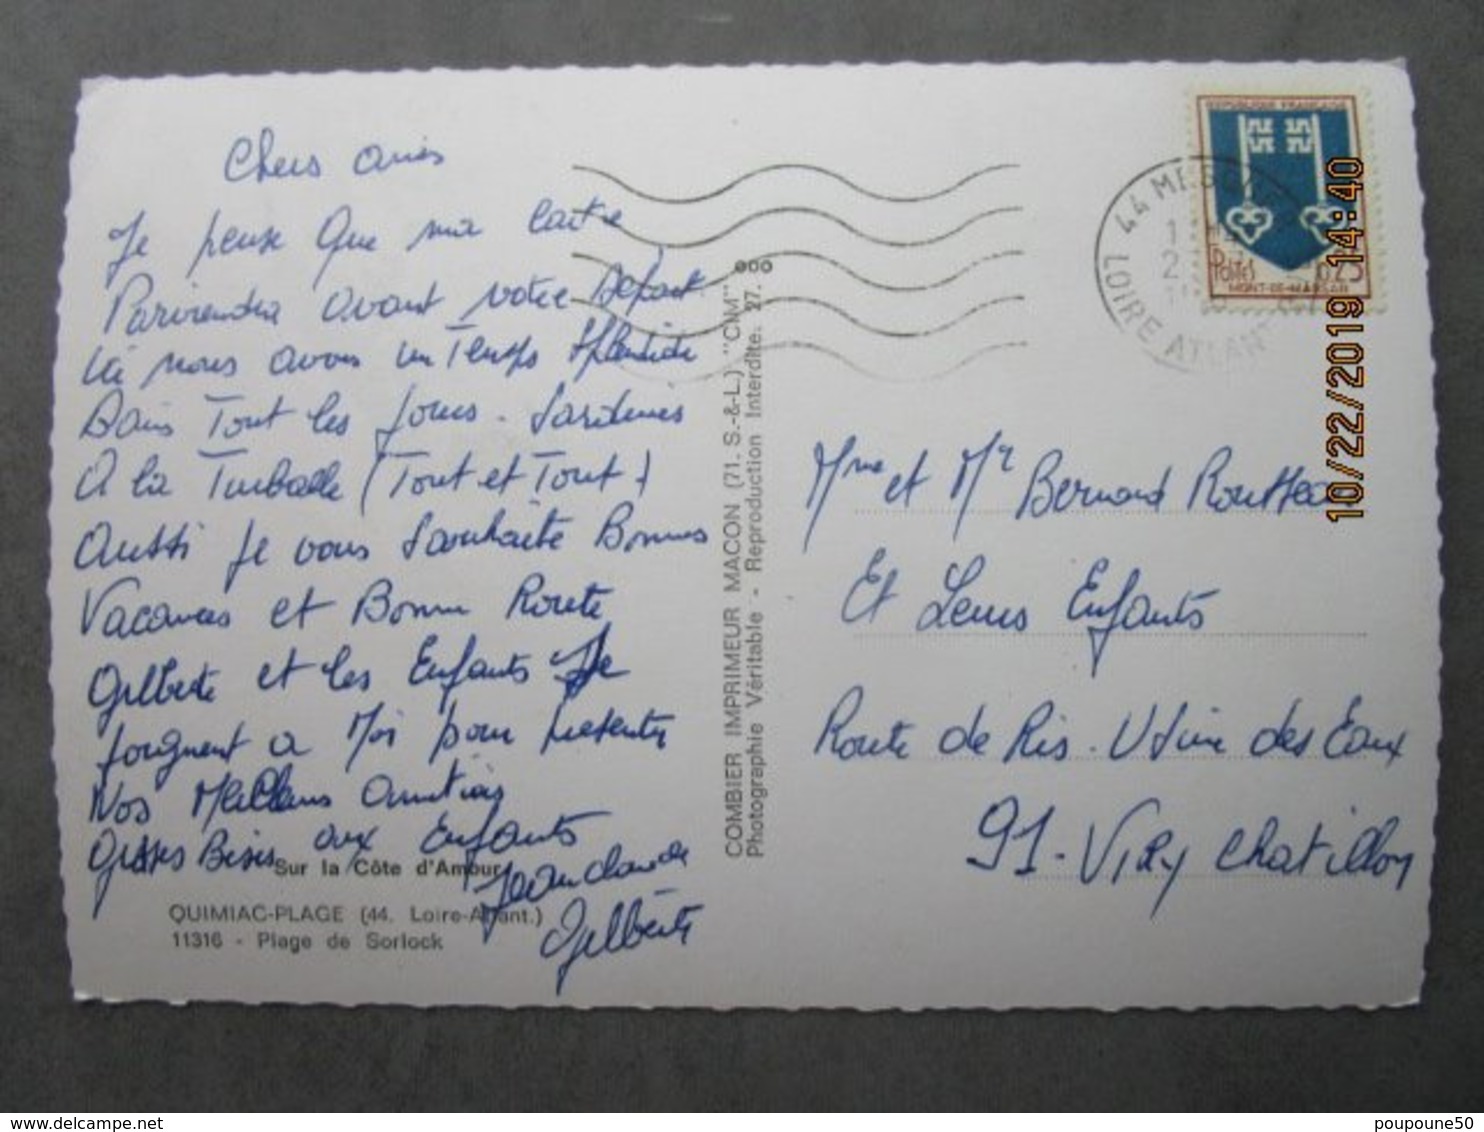 Chers Amis
Je pense Que ma Carte
Parviendra avant votre Départ
Ici nous avons un Temps Splendide
Bains Tout les Jours. Sardines
A la Turballe (Tout et Tout)
Aussi Je vous Souhaite Bonnes
Vacances et Bonne Route
Gilberte et les Enfants Se
Joignent a Moi pour presenter
Nos Meilleurs Amitiés
Grosses Bises aux Enfants
Jean Claude
Gilberte
Sur la Côte d'Amour
QUIMIAC-PLAGE (44. Loire-Atlant.)
11316 - Plage de Sorlock
COMBIER IMPRIMEUR MACON (71. S.-&-L.) "CIM"
Photographie Véritable - Reproduction Interdite. 27.
000
REPUBLIQUE FRANÇAISE
POSTES 0,25
MONT-DE-MARSAN
44
LOIRE ATLANT
Mme et Mr Bernard
Et Leurs Enfants
Route de Ris. Usine des Eaux
91-VIRY Chatillon
10/22/2019 14:40
poupoune50